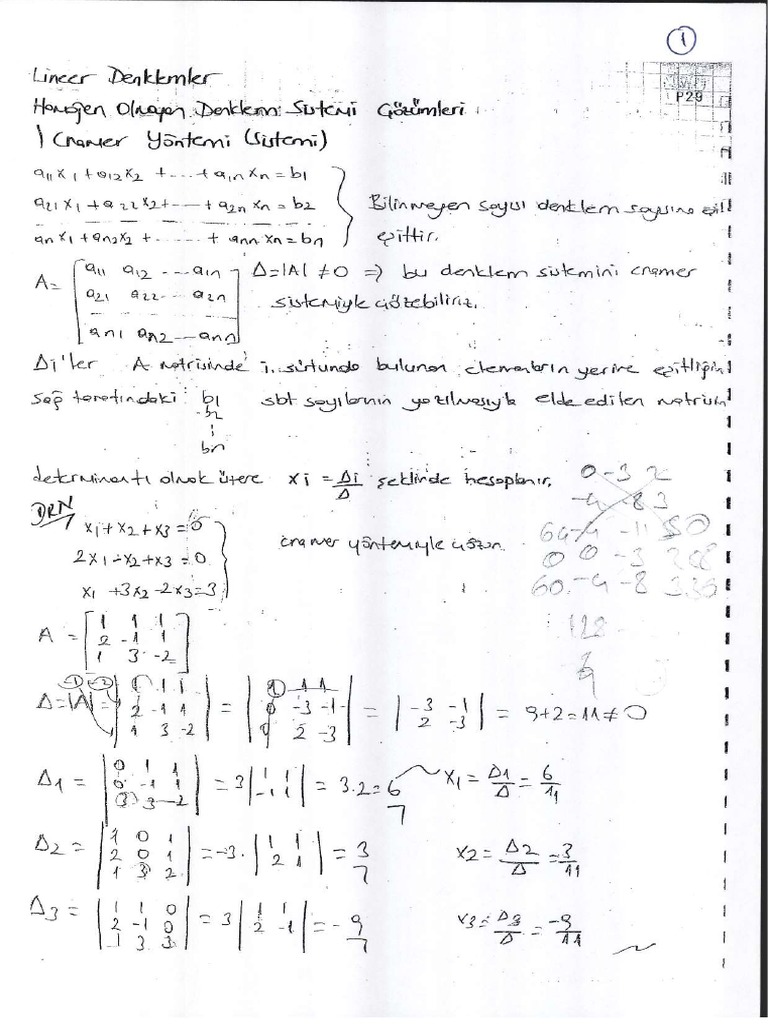 1
P29
Lineer Denklemler
Homojen Olmayan Denklem Sistemi Çözümleri
1 Cramer Yöntemi (Sistemi)
a11x1 + a12x2 + ---- + a1n xn = b1
a21x1 + a22x2 + ---- + a2n xn = b2
an x1 + an2x2 + ...... + ann xn = bn
Bilinmeyen sayısı denklem sayısına eşit
eşittir.
A = [ a11 a12 --- a1n
a21 a22 --- a2n
an1 an2 --- ann ]
Δ = |A| ≠ 0 => bu denklem sistemini cramer
sistemiyle çözebiliriz.
Δi'ler A matrisinde i. sütunda bulunan elemanların yerine eşitliğin
sağ tarafındaki b1 sbt sayılarının yazılmasıyla elde edilen matrisin
b2
bn
determinantı olmak üzere xi = Δi/Δ şeklinde hesaplanır.
ÖRN
x1 + x2 + x3 = 0
2x1 - x2 + x3 = 0
x1 + 3x2 - 2x3 = 3
cramer yöntemiyle çözün.
0 -3 2
-4 -8 3
128
A = [ 1 1 1
2 -1 1
1 3 -2 ]
Δ = |A| = | 1 1 1 | = | 1 1 1 | = | -3 -1 | = 9 + 2 = 11 ≠ 0
| 2 -1 1 | | 0 -3 -1 | | 2 -3 |
| 1 3 -2 | | 0 2 -3 |
Δ1 = | 0 1 1 | = 3 | 1 1 | = 3.2 = 6 x1 = Δ1/Δ = 6/11
| 0 -1 1 | | -1 1 |
| 3 3 -2 |
Δ2 = | 1 0 1 | = -3. | 1 1 | = 3 x2 = Δ2/Δ = 3/11
| 2 0 1 | | 2 1 |
| 1 3 2 |
Δ3 = | 1 1 0 | = 3 | 1 1 | = -9 x3 = Δ3/Δ = -9/11
| 2 -1 0 | | 2 -1 |
| 1 3 3 |